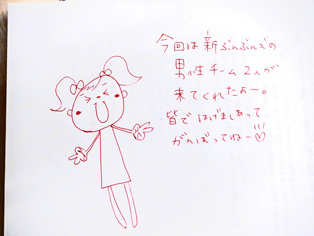 今回は新ぶんぶんズの
男性チーム2人が
来てくれたよー。
皆ではげましあって
がんばってねー♡